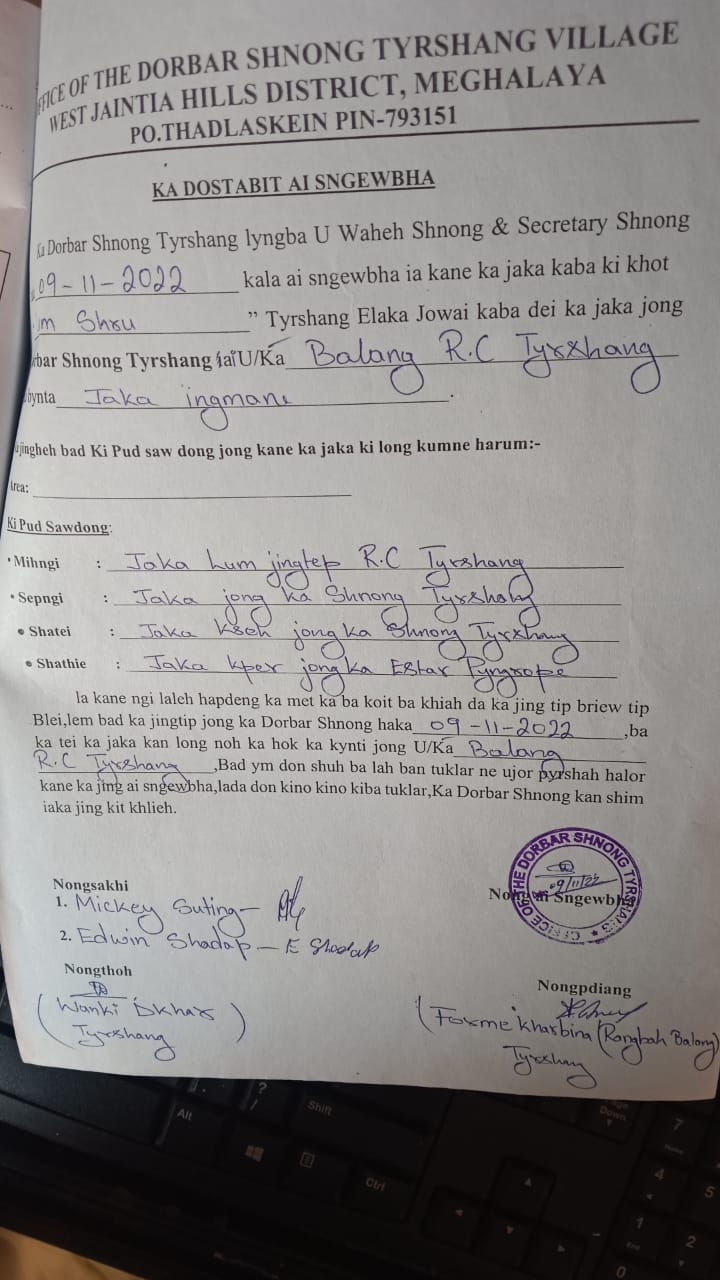 OFFICE OF THE DORBAR SHNONG TYRSHANG VILLAGE
WEST JAINTIA HILLS DISTRICT, MEGHALAYA
PO.THADLASKEIN PIN-793151
KA DOSTABIT AI SNGEWBHA
Ka Dorbar Shnong Tyrshang lyngba U Waheh Shnong & Secretary Shnong
09-11-2022 kala ai sngewbha ia kane ka jaka kaba ki khot
Shru ” Tyrshang Elaka Jowai kaba dei ka jaka jong
Dorbar Shnong Tyrshang U/Ka Balang R.C Tyrshang
Jaka ingmane.
jingheh bad Ki Pud saw dong jong kane ka jaka ki long kumne harum:-
Area:
Ki Pud Sawdong:
• Mihngi : Jaka Lum jingtep R.C Tyrshang
• Sepngi : Jaka jong ka Shnong Tyrshang
• Shatei : Jaka Kseh jong ka Shnong Tyrshang
• Shathie : Jaka kper jong ka Estar Pyngrope
Ia kane ngi laleh hapdeng ka met ka ba koit ba khiah da ka jing tip briew tip
Blei,lem bad ka jingtip jong ka Dorbar Shnong haka 09-11-2022 ,ba
ka tei ka jaka kan long noh ka hok ka kynti jong U/Ka Balang
R.C Tyrshang ,Bad ym don shuh ba lah ban tuklar ne ujor pyrshah halor
kane ka jing ai sngewbha,lada don kino kino kiba tuklar,Ka Dorbar Shnong kan shim
iaka jing kit khlieh.
OFFICE OF THE DORBAR SHNONG TYRSHANG
09/11/22
Nongsakhi
Nong ai Sngewbha
1. Mickey Suting
2. Edwin Shadap - E Shadap
Nongthoh
Nongpdiang
(Wanki Dkhar)
Tyrshang
(Forme Kharbina (Rangbah Balang)
Tyrshang
Alt
Shift
Ctrl